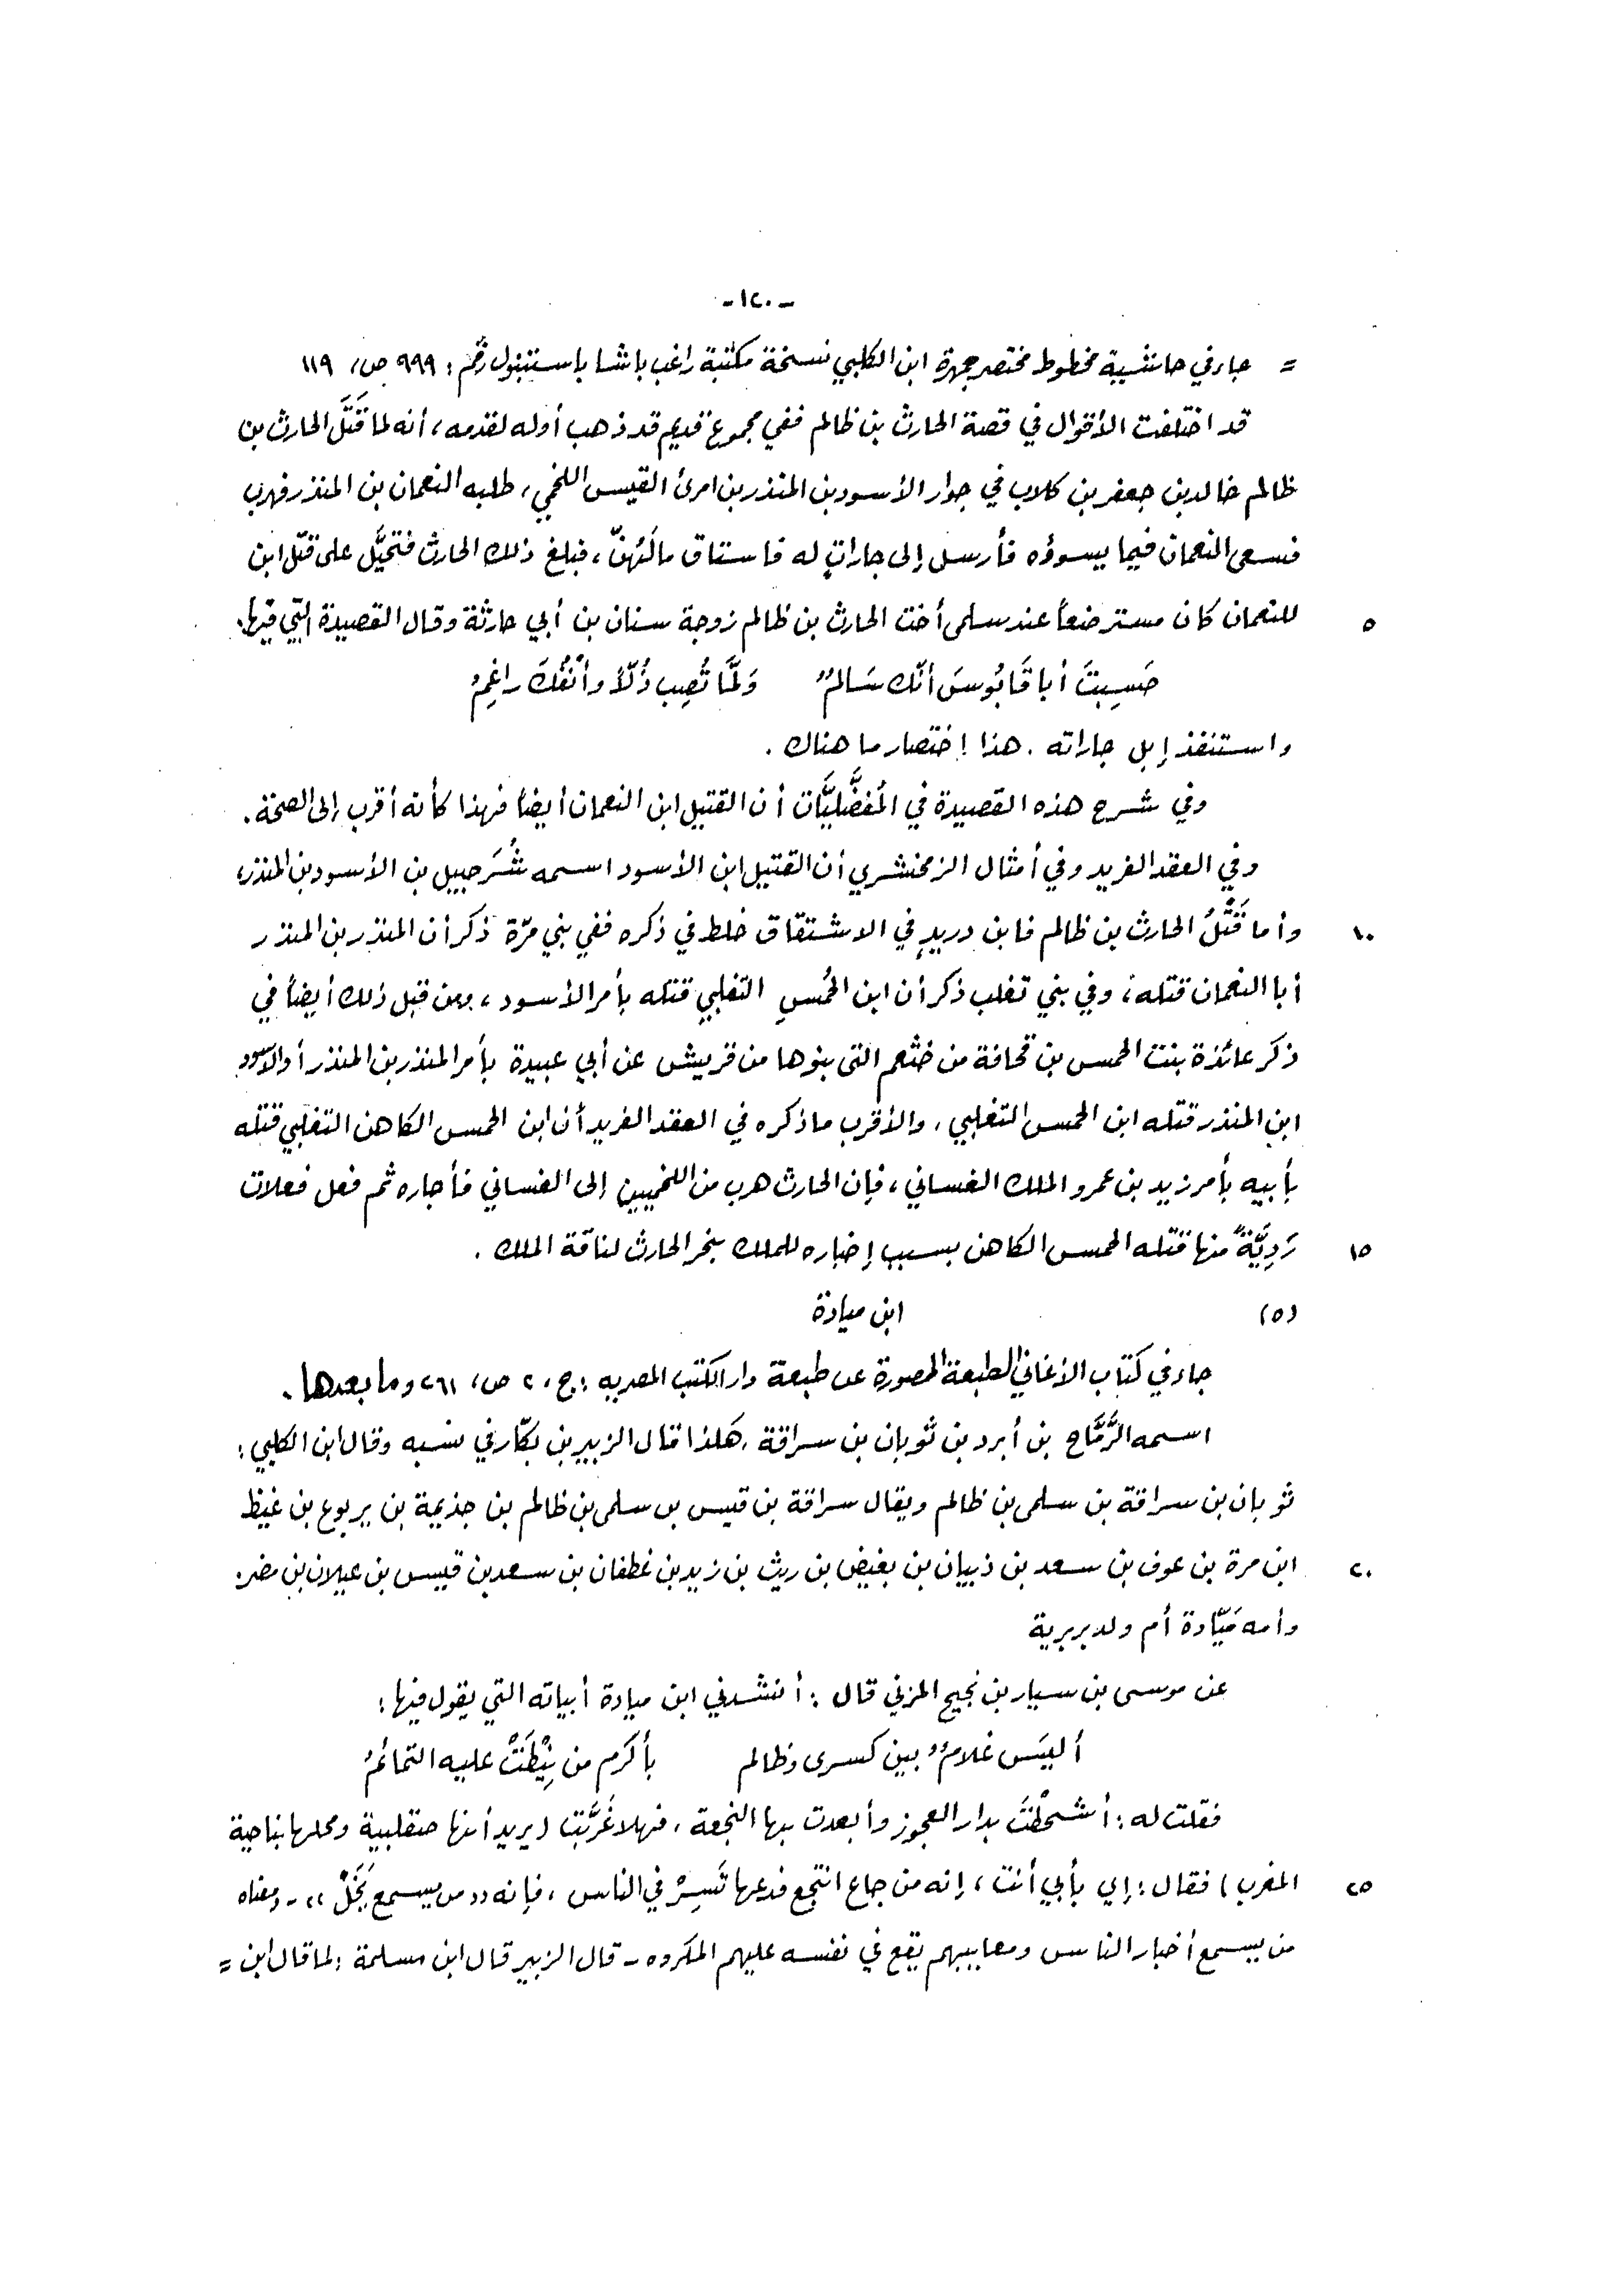 -١٢٠-
= جاء في حاشية مخطوط مختصر جمهرة ابن الكلبي نسخة مكتبة راغب باشا باستنبول رقم: ٩٩٩ ص، ١١٩
قد اختلفت الأقوال في قصة الحارث بن ظالم ففي مجموع قديم قد ذهب أوله لقدمه، أنه لما قَتَلَ الحارث بن
ظالم خالد بن جعفر بن كلاب في جوار الأسود بن المنذر بن امرئ القيس اللخمي، طلبه النعمان بن المنذر فهرب
فسعى النعمان فيما يسوؤه فأرسل إلى جاراتٍ له فاستاق مالَهُنَّ، فبلغ ذلك الحارث فتحيَّل على قتل ابن
٥ للنعمان كان مسترضعاً عند سلمى أخت الحارث بن ظالم زوجة سنان بن أبي حارثة وقال القصيدة التي فيها:
حَسِبتَ أبا قَابُوسَ أنّك سَالمٌ وَلمَّا تُصِب ذُلّاً وأنْفُكَ راغِمُ
واستنقذ إبل جاراته. هذا إختصار ما هناك.
وفي شرح هذه القصيدة في المُفضَّليَّات أن القتيل ابن النعمان أيضاً فهذا كأنه أقرب إلى الصحة.
وفي العقد الفريد وفي أمثال الزمخشري أن القتيل ابن الأسود اسمه شُرَحبيل بن الأسود بن المنذر،
١٠ وأما قَتْلُ الحارث بن ظالم فابن دريدٍ في الاشتقاق خلط في ذكره ففي بني مرّة ذكر أن المنذر بن المنذر
أبا النعمان قتله، وفي بني تغلب ذكر أن ابن الخُمسِ التغلبي قتله بأمر الأسود، ومن قبل ذلك أيضاً في
ذكر عائذة بنت الخمس بن قحافة من خثعم التي بنوها من قريش عن أبي عبيدة بأمر المنذر بن المنذر أو الأسود
ابن المنذر قتله ابن الخمس التغلبي، والأقرب ما ذكره في العقد الفريد أن ابن الخمس الكاهن التغلبي قتله
بأبيه بأمر زيد بن عمرو الملك الغساني، فإن الحارث هرب من اللخميين إلى الغساني فأجاره ثم فعل فعلات
١٥ رَدِيَّةً منها قتله الخمس الكاهن بسبب إخباره للملك بنحر الحارث لناقة الملك.
(٥) ابن ميادة
جاء في كتاب الأغاني الطبعة المصورة عن طبعة دار الكتب المصريه: ج، ٢ ص، ٢٦١ وما بعدها.
اسمه الرَّمَّاح بن أبرد بن ثوبان بن سراقة، هكذا قال الزبير بن بكّار في نسبه وقال ابن الكلبي:
ثوبان بن سراقة بن سلمى بن ظالم ويقال سراقة بن قيس بن سلمى بن ظالم بن جذيمة بن يربوع بن غيظ
٢٠ ابن مرة بن عوف بن سعد بن ذبيان بن بغيض بن ريث بن زيد بن غطفان بن سعد بن قيس بن عيلان بن مضر.
وأمه مَيّادة أم ولد بربرية
عن موسى بن سيار بن نجيح المزني قال: أنشدني ابن ميادة أبياته التي يقول فيها:
أليَس غلامٌ بين كسرى وظالم بأكَرمِ من نِيْطَتْ عليه التمائمُ
فقلت له: أشحْطْتَ بدار العجوز وأبعدت بها النجعة، فهلا غَرَّبَتَ (يريد أنها صقلبية ومحلها بناحية
٢٥ المغرب) فقال: إي بأبي أنت، إنه من جاع انتجع فدعها تَسِرْ في الناس، فإنه «من يسمع يَخَلْ» - ومعناه
من يسمع أخبار الناس ومعايبهم يقع في نفسه عليهم المكروه - قال الزبير قال ابن مسلمة: لما قال ابن =